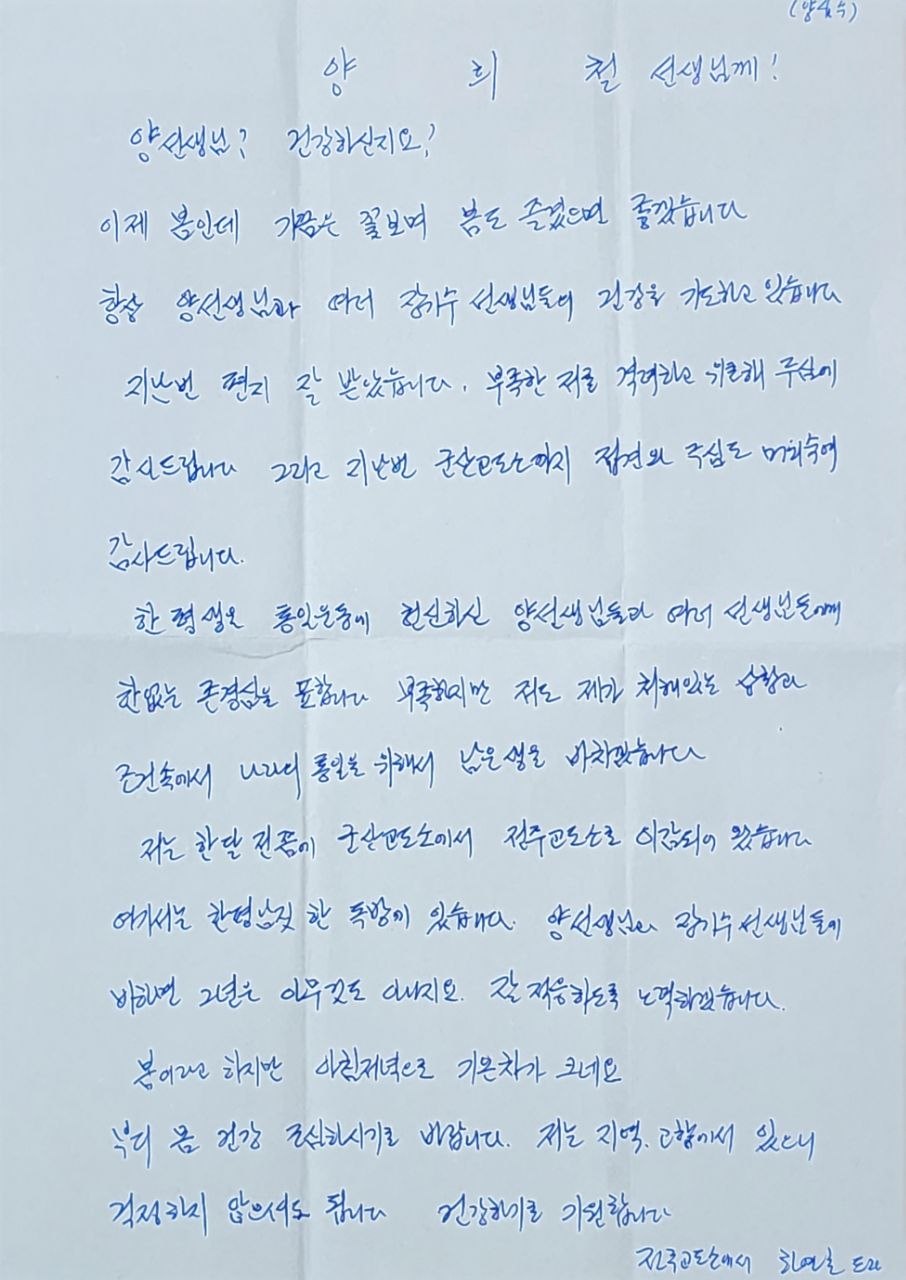 (양심수)
양 희 철 선생님께!
양선생님? 건강하신지요?
이제 봄인데 가끔은 꽃보며 봄도 즐겼으면 좋겠습니다
항상 양선생님과 여러 장기수 선생님들의 건강을 기도하고 있습니다
지난번 편지 잘 받았습니다. 부족한 저를 격려하고 위로해 주심에
감사드립니다 그리고 지난번 군산교도소까지 접견와 주심도 머리숙여
감사드립니다.
한평생을 통일운동에 헌신하신 양선생님들과 여러 선생님들에게
한없는 존경심을 표합니다 부족하지만 저도 제가 처해있는 상황과
조건속에서 나라의 통일을 위해서 남은생을 바치겠습니다
저는 한달 전쯤에 군산교도소에서 전주교도소로 이감되어 왔습니다
여기서는 한평남짓 한 독방에 있습니다. 양선생님과 장기수선생님들에
비하면 2년은 아무것도 아니지요. 잘 적응하도록 노력하겠습니다.
봄이라고 하지만 아침저녁으로 기온차가 크네요
부디 몸 건강 조심하시기를 바랍니다. 저는 지역, 고향에서 있으니
걱정하지 않으셔도 됩니다 건강하기를 기원합니다
전주교도소에서 하연호 드림